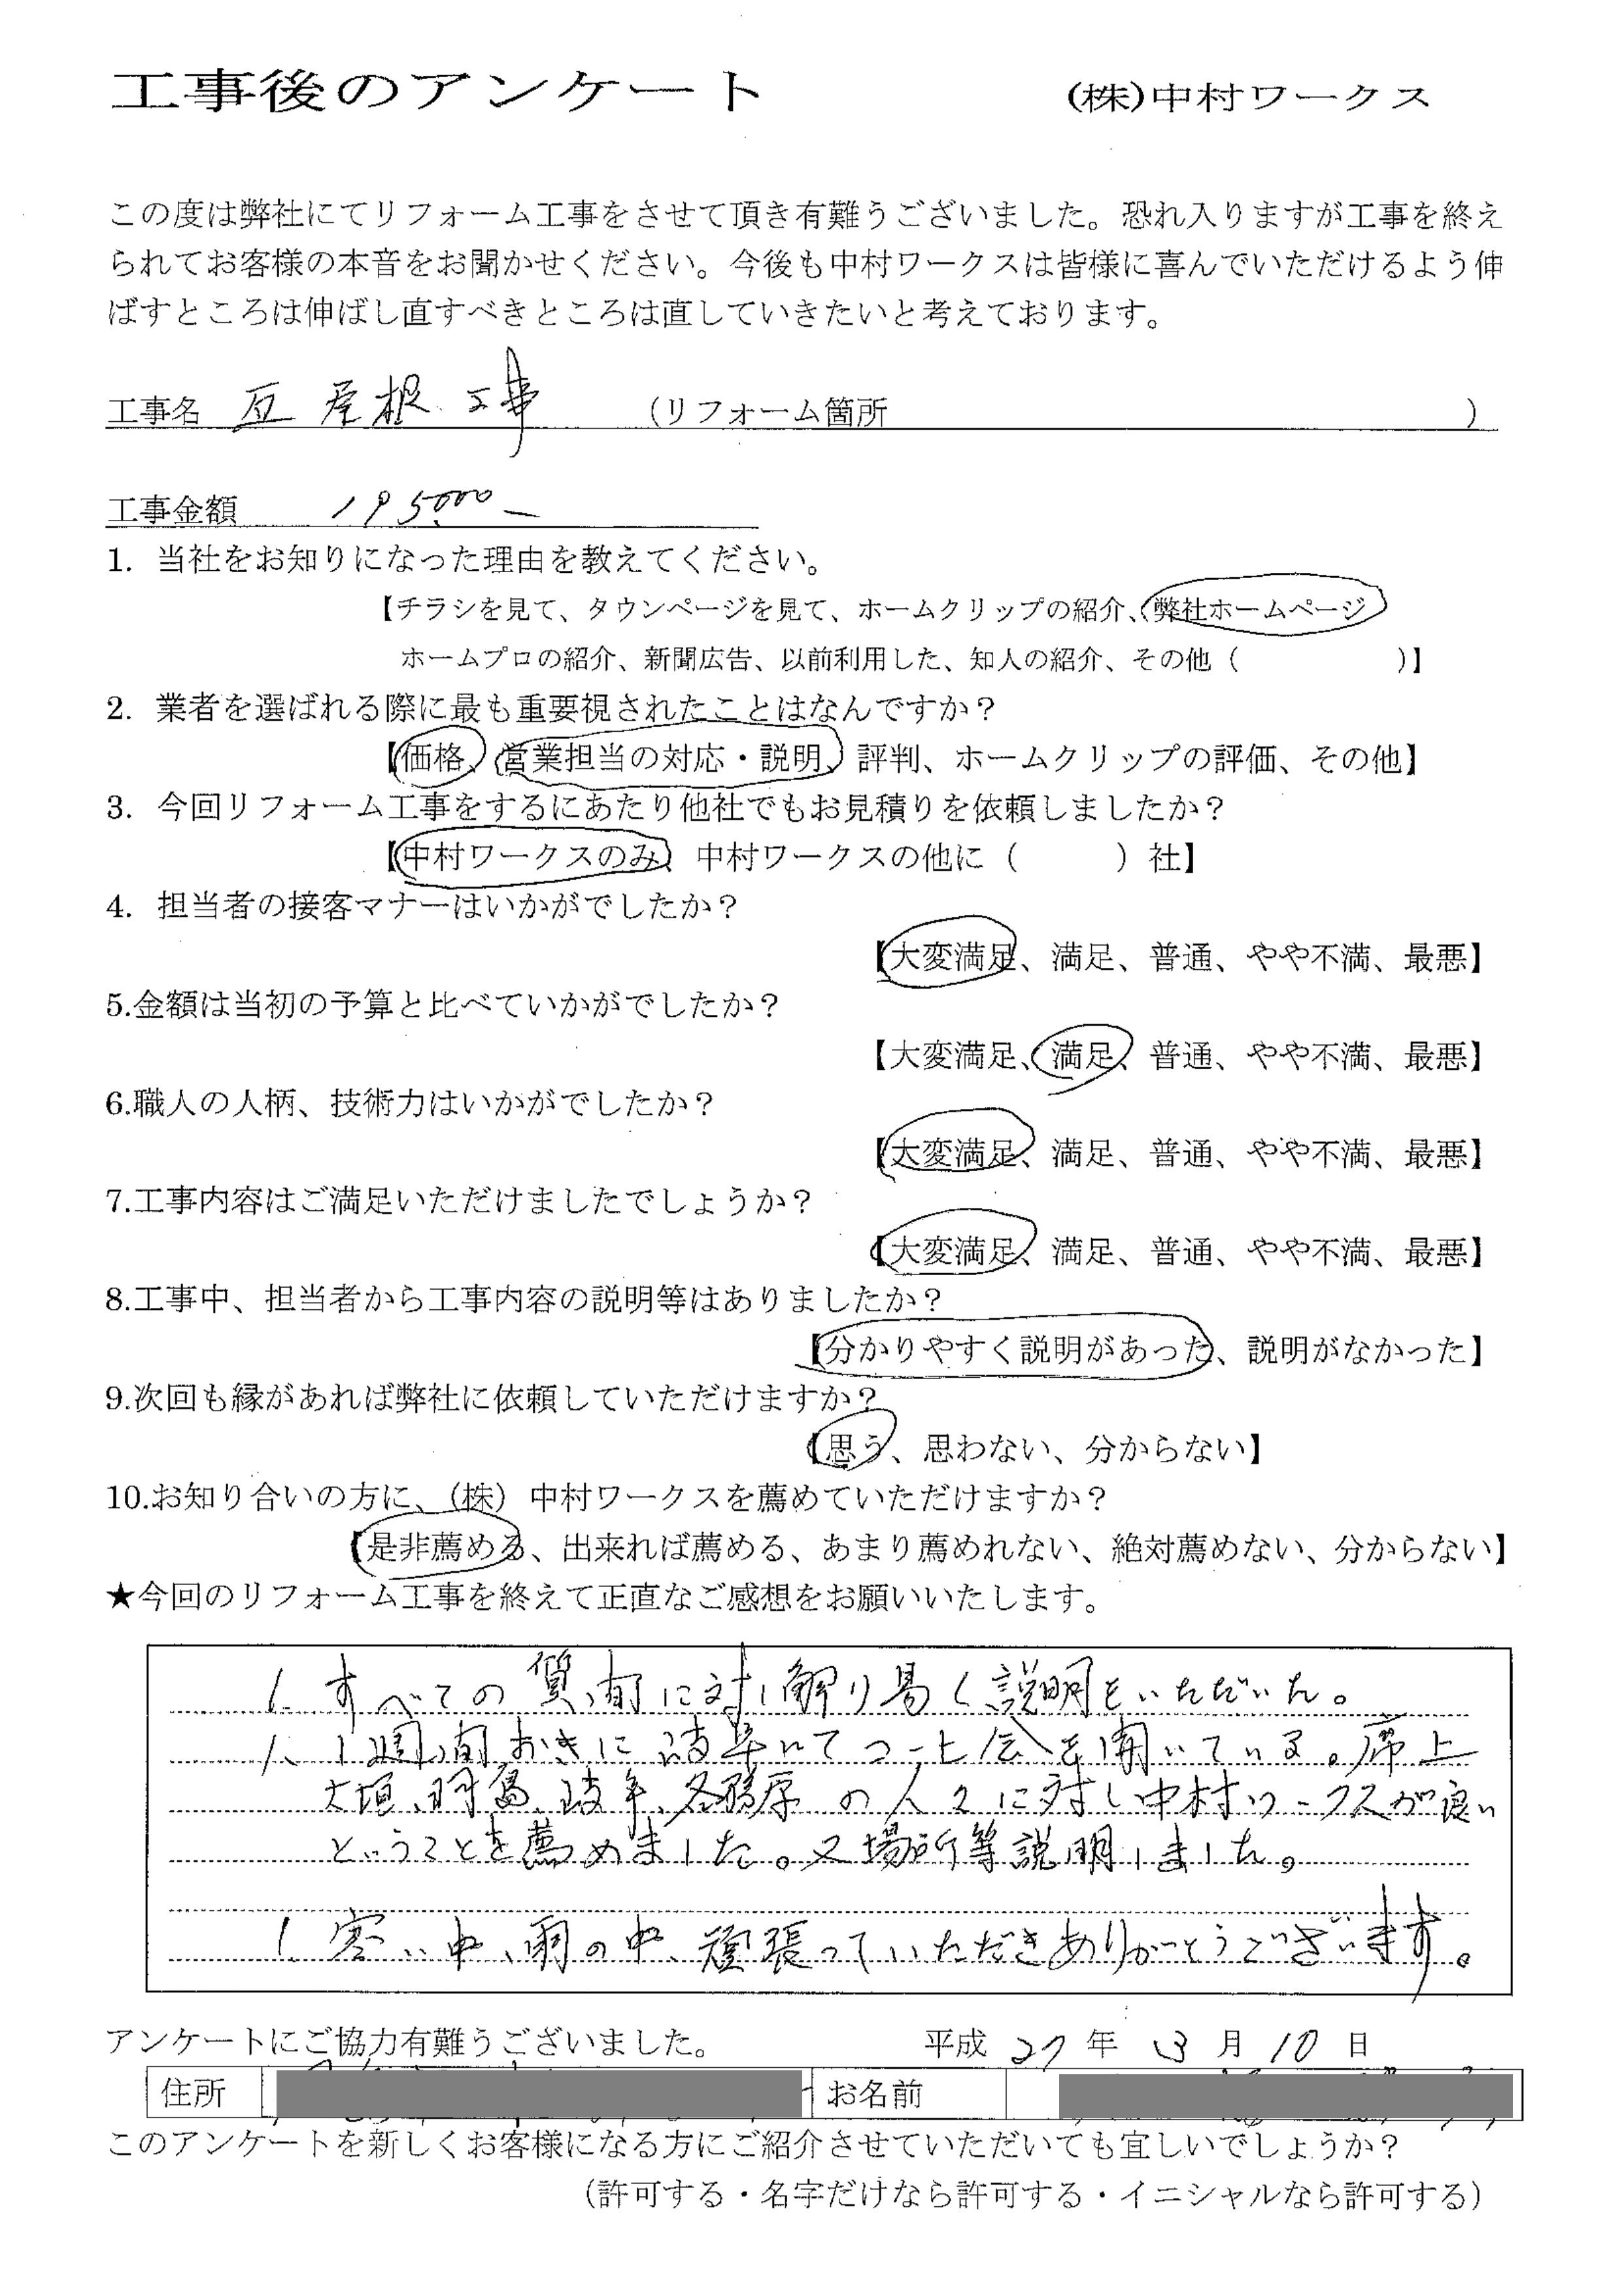 工事後のアンケート (株)中村ワークス
この度は弊社にてリフォーム工事をさせて頂き有難うございました。恐れ入りますが工事を終え
られてお客様の本音をお聞かせください。今後も中村ワークスは皆様に喜んでいただけるよう伸
ばすところは伸ばし直すべきところは直していきたいと考えております。
工事名 瓦屋根工事 (リフォーム箇所 )
工事金額 195000-
1. 当社をお知りになった理由を教えてください。
【チラシを見て、タウンページを見て、ホームクリップの紹介、弊社ホームページ
ホームプロの紹介、新聞広告、以前利用した、知人の紹介、その他( )】
2. 業者を選ばれる際に最も重要視されたことはなんですか?
【価格、営業担当の対応・説明、評判、ホームクリップの評価、その他】
3. 今回リフォーム工事をするにあたり他社でもお見積りを依頼しましたか?
【中村ワークスのみ、中村ワークスの他に( )社】
4. 担当者の接客マナーはいかがでしたか?
【大変満足、満足、普通、やや不満、最悪】
5.金額は当初の予算と比べていかがでしたか?
【大変満足、満足、普通、やや不満、最悪】
6.職人の人柄、技術力はいかがでしたか?
【大変満足、満足、普通、やや不満、最悪】
7.工事内容はご満足いただけましたでしょうか?
【大変満足、満足、普通、やや不満、最悪】
8.工事中、担当者から工事内容の説明等はありましたか?
【分かりやすく説明があった、説明がなかった】
9.次回も縁があれば弊社に依頼していただけますか?
【思う、思わない、分からない】
10.お知り合いの方に、(株)中村ワークスを薦めていただけますか?
【是非薦める、出来れば薦める、あまり薦めれない、絶対薦めない、分からない】
★今回のリフォーム工事を終えて正直なご感想をお願いいたします。
1. すべての質問に対し解り易く説明をいただいた。
1. 1週間おきに岐阜にてコーヒ会を開いている。席上
大垣、羽島、岐阜、各務原の人々に対し中村ワークスが良い
ということを薦めました。又場所等説明しました。
1. 寒い中、雨の中、頑張っていただきありがとうございます。
アンケートにご協力有難うございました。 平成 27 年 3 月 10 日
住所 お名前
このアンケートを新しくお客様になる方にご紹介させていただいても宜しいでしょうか?
(許可する・名字だけなら許可する・イニシャルなら許可する)